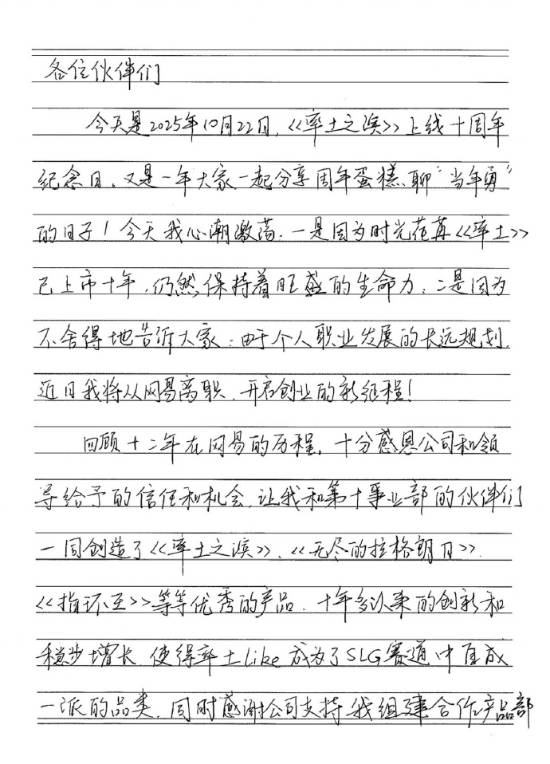 各位伙伴们
今天是2025年10月22日，《率土之滨》上线十周年
纪念日，又是一年大家一起分享周年蛋糕、聊“当年勇”
的日子！今天我心潮激荡，一是因为时光荏苒《率土》
已上市十年，仍然保持着旺盛的生命力；二是因为
不舍得地告诉大家：由于个人职业发展的长远规划，
近日我将从网易离职，开启创业的新征程！
回顾十二年在网易的历程，十分感恩公司和领
导给予的信任和机会，让我和第十事业部的伙伴们
一同创造了《率土之滨》、《无尽的拉格朗日》、
《指环王》等等优秀的产品。十年多以来的创新和
稳步增长，使得率土like成为了SLG赛道中自成
一派的品类。同时感谢公司支持我组建合作产品部